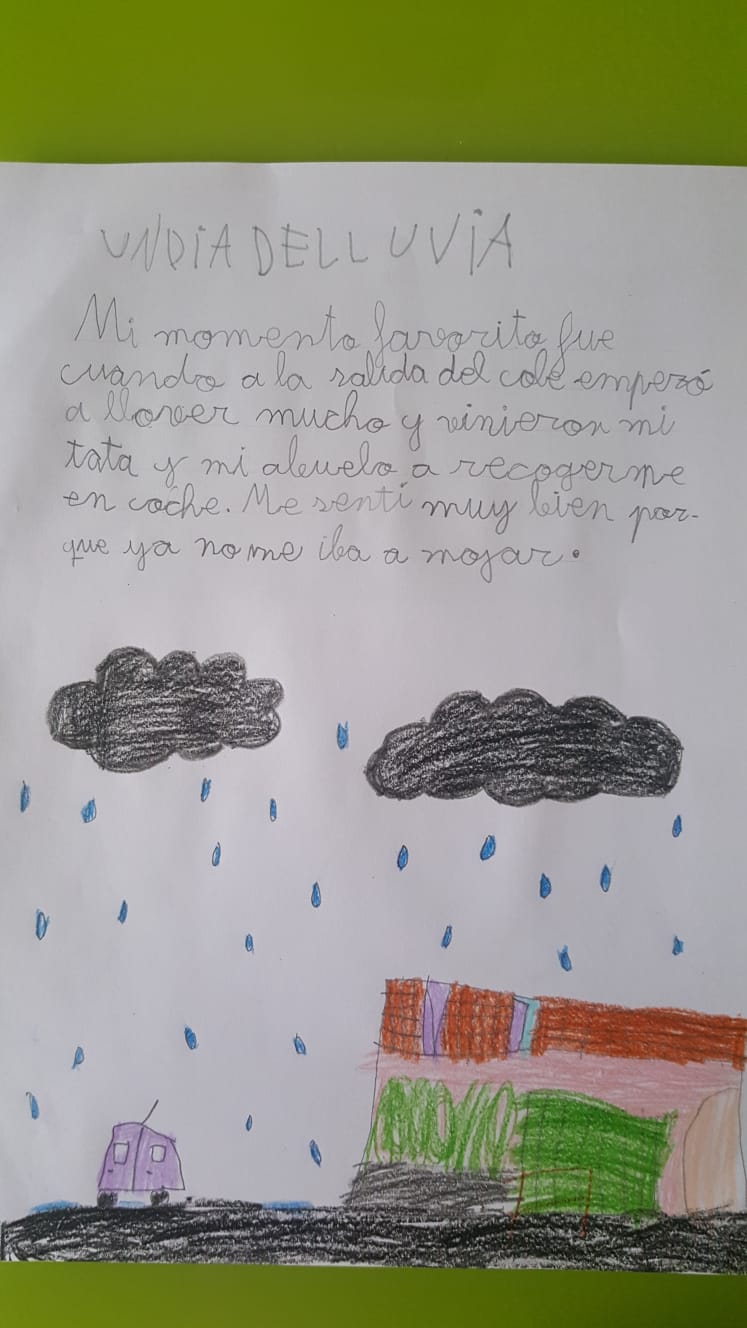 UN DIA DE LLUVIA
Mi momento favorito fue
cuando a la salida del cole empezó
a llover mucho y vinieron mi
tata y mi abuelo a recogerme
en coche. Me sentí muy bien por-
que ya no me iba a mojar.